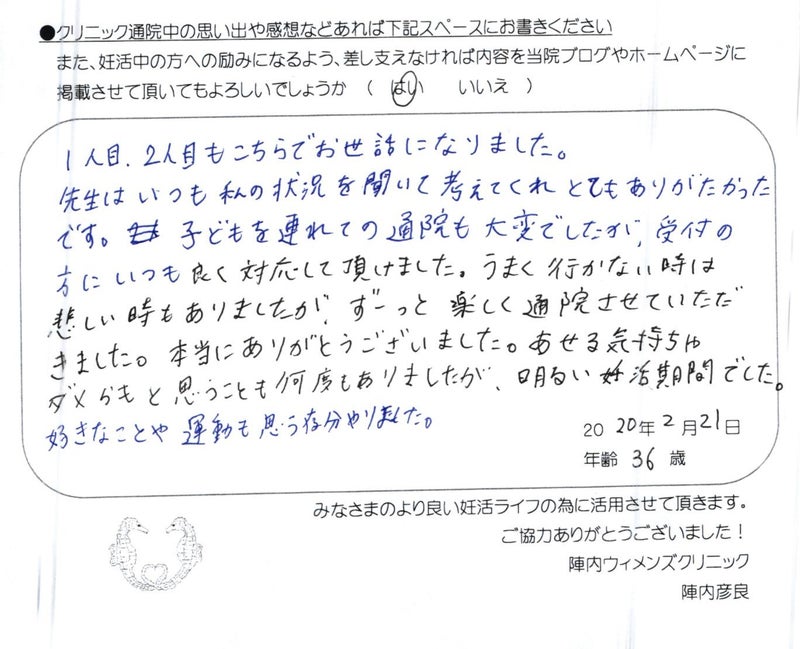 ●クリニック通院中の思い出や感想などあれば下記スペースにお書きください
また、妊活中の方への励みになるよう、差し支えなければ内容を当院ブログやホームページに
掲載させて頂いてもよろしいでしょうか （ はい いいえ ）
1人目、2人目もこちらでお世話になりました。
先生はいつも私の状況を聞いて考えてくれとてもありがたかった
です。子どもを連れての通院も大変でしたが、受付の
方にいつも良く対応して頂けました。うまく行かない時は
悲しい時もありましたが、ずーっと楽しく通院させていただ
きました。本当にありがとうございました。あせる気持ちや
ダメかもと思うことも何度もありましたが、明るい妊活期間でした。
好きなことや運動も思う存分やりました。
2020年2月21日
年齢 36 歳
みなさまのより良い妊活ライフの為に活用させて頂きます。
ご協力ありがとうございました！
陣内ウィメンズクリニック
陣内彦良